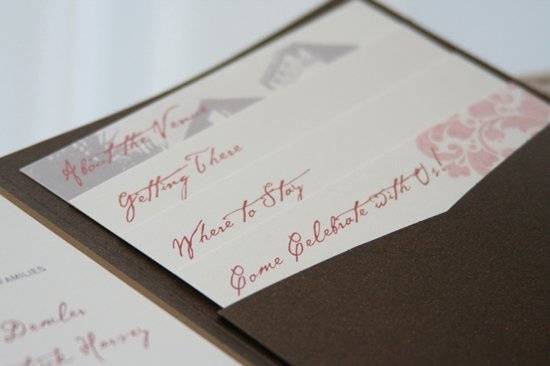 About the Venue
Getting There
Where to Stay
Come Celebrate with Us!
FAMILIES
Demler
Harvey